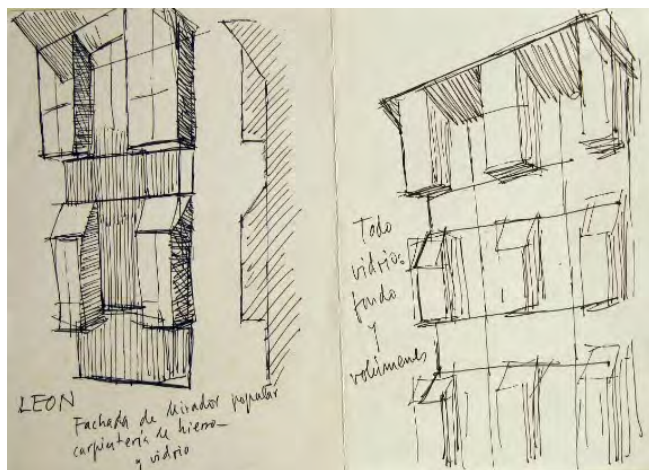 LEON
Fachada de Mirador popular
carpintería de hierro
y vidrio
Todo
vidrio:
fondo
y
volúmenes